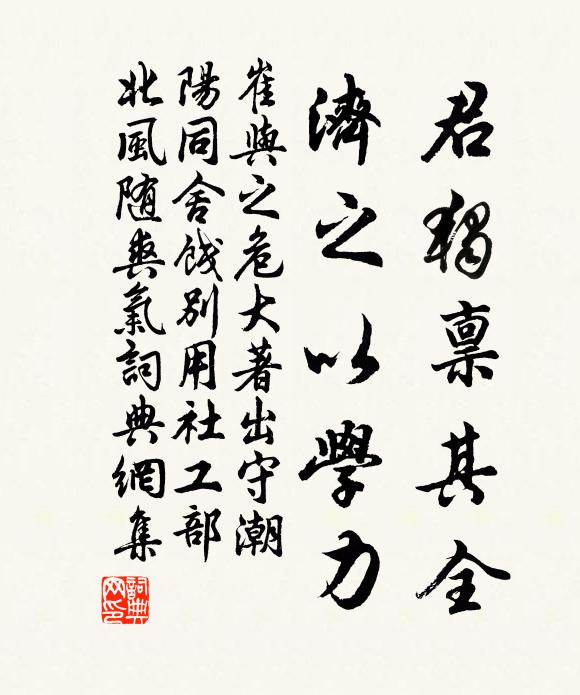 君獨稟其全
濟之以學力
崔與之危大著出守潮
陽同舍餞別用社工部
北風随爽氣詞典網集
詞典
网印